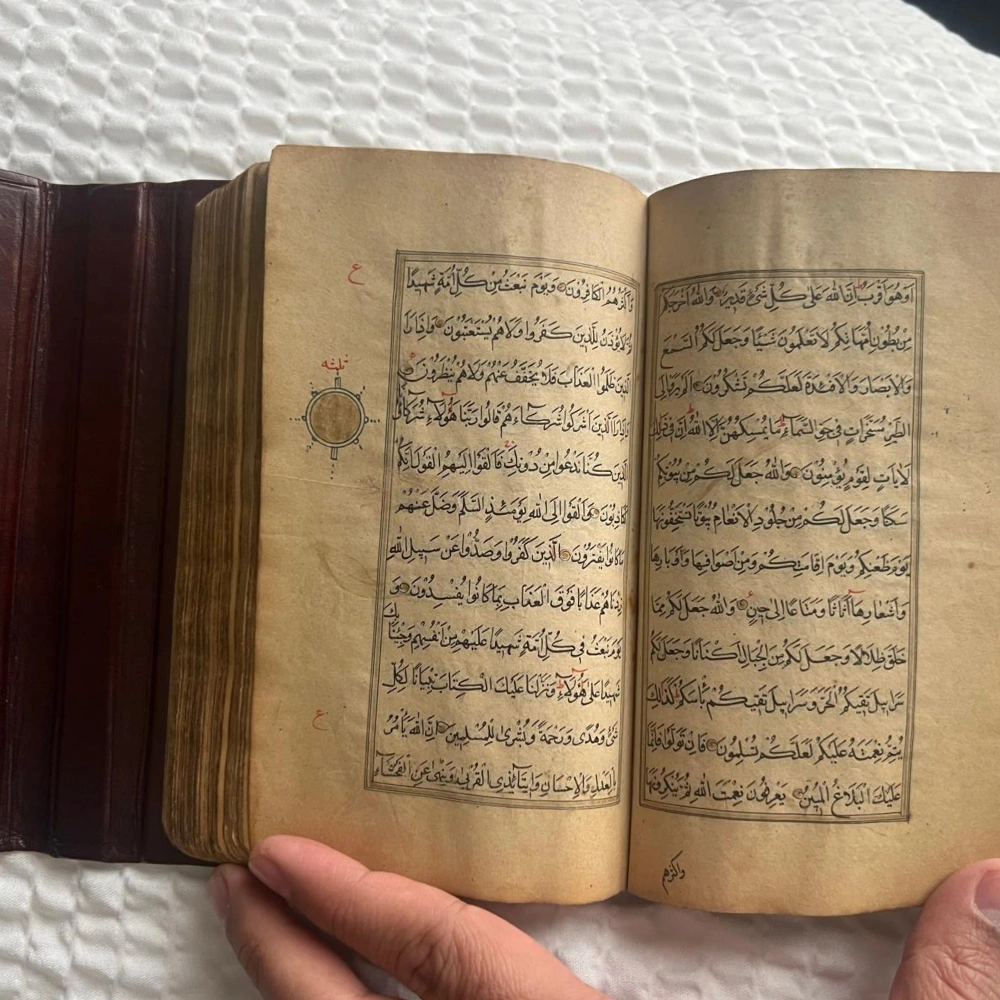 اَوْ هُوَ اَقْرَبُ اِنَّ اللهَ عَلٰى كُلِّ شَيْءٍ قَدِيرٌ وَاللهُ اَخْرَجَكُمْ
مِنْ بُطُونِ اُمَّهَاتِكُمْ لَا تَعْلَمُونَ شَيْئًا وَجَعَلَ لَكُمُ السَّمْعَ
وَالْاَبْصَارَ وَالْاَفْئِدَةَ لَعَلَّكُمْ تَشْكُرُونَ اَلَمْ يَرَوْا اِلَى
الطَّيْرِ مُسَخَّرَاتٍ فِي جَوِّ السَّمَاءِ مَا يُمْسِكُهُنَّ اِلَّا اللهُ اِنَّ فِي ذٰلِكَ
لَاٰيَاتٍ لِقَوْمٍ يُؤْمِنُونَ وَاللهُ جَعَلَ لَكُمْ مِنْ بُيُوتِكُمْ
سَكَنًا وَجَعَلَ لَكُمْ مِنْ جُلُودِ الْاَنْعَامِ بُيُوتًا تَسْتَخِفُّونَهَا
يَوْمَ ظَعْنِكُمْ وَيَوْمَ اِقَامَتِكُمْ وَمِنْ اَصْوَافِهَا وَاَوْبَارِهَا
وَاَشْعَارِهَا اَثَاثًا وَمَتَاعًا اِلٰى حِينٍ وَاللهُ جَعَلَ لَكُمْ مِمَّا
خَلَقَ ظِلَالًا وَجَعَلَ لَكُمْ مِنَ الْجِبَالِ اَكْنَانًا وَجَعَلَ لَكُمْ
سَرَابِيلَ تَقِيكُمُ الْحَرَّ وَسَرَابِيلَ تَقِيكُمْ بَأْسَكُمْ كَذٰلِكَ
يُتِمُّ نِعْمَتَهُ عَلَيْكُمْ لَعَلَّكُمْ تُسْلِمُونَ فَاِنْ تَوَلَّوْا فَاِنَّمَا
عَلَيْكَ الْبَلَاغُ الْمُبِينُ يَعْرِفُونَ نِعْمَتَ اللهِ ثُمَّ يُنْكِرُونَهَا
واكثرهم
وَاَكْثَرُهُمُ الْكَافِرُونَ وَيَوْمَ نَبْعَثُ مِنْ كُلِّ اُمَّةٍ شَهِيدًا
ثُمَّ لَا يُؤْذَنُ لِلَّذِينَ كَفَرُوا وَلَا هُمْ يُسْتَعْتَبُونَ وَاِذَا رَاَ
الَّذِينَ ظَلَمُوا الْعَذَابَ فَلَا يُخَفَّفُ عَنْهُمْ وَلَا هُمْ يُنْظَرُونَ
وَاِذَا رَاَ الَّذِينَ اَشْرَكُوا شُرَكَاءَهُمْ قَالُوا رَبَّنَا هٰؤُلَاءِ شُرَكَاؤُنَا
الَّذِينَ كُنَّا نَدْعُوا مِنْ دُونِكَ فَاَلْقَوْا اِلَيْهِمُ الْقَوْلَ اِنَّكُمْ
لَكَاذِبُونَ وَاَلْقَوْا اِلَى اللهِ يَوْمَئِذٍ السَّلَمَ وَضَلَّ عَنْهُمْ
مَا كَانُوا يَفْتَرُونَ اَلَّذِينَ كَفَرُوا وَصَدُّوا عَنْ سَبِيلِ اللهِ
زِدْنَاهُمْ عَذَابًا فَوْقَ الْعَذَابِ بِمَا كَانُوا يُفْسِدُونَ وَ
يَوْمَ نَبْعَثُ فِي كُلِّ اُمَّةٍ شَهِيدًا عَلَيْهِمْ مِنْ اَنْفُسِهِمْ وَجِئْنَا بِكَ
شَهِيدًا عَلٰى هٰؤُلَاءِ وَنَزَّلْنَا عَلَيْكَ الْكِتَابَ تِبْيَانًا لِكُلِّ
شَيْءٍ وَهُدًى وَرَحْمَةً وَبُشْرٰى لِلْمُسْلِمِينَ اِنَّ اللهَ يَأْمُرُ
بِالْعَدْلِ وَالْاِحْسَانِ وَاِيتَائِ ذِي الْقُرْبٰى وَيَنْهٰى عَنِ الْفَحْشَاءِ
ع
ثلثه
ع